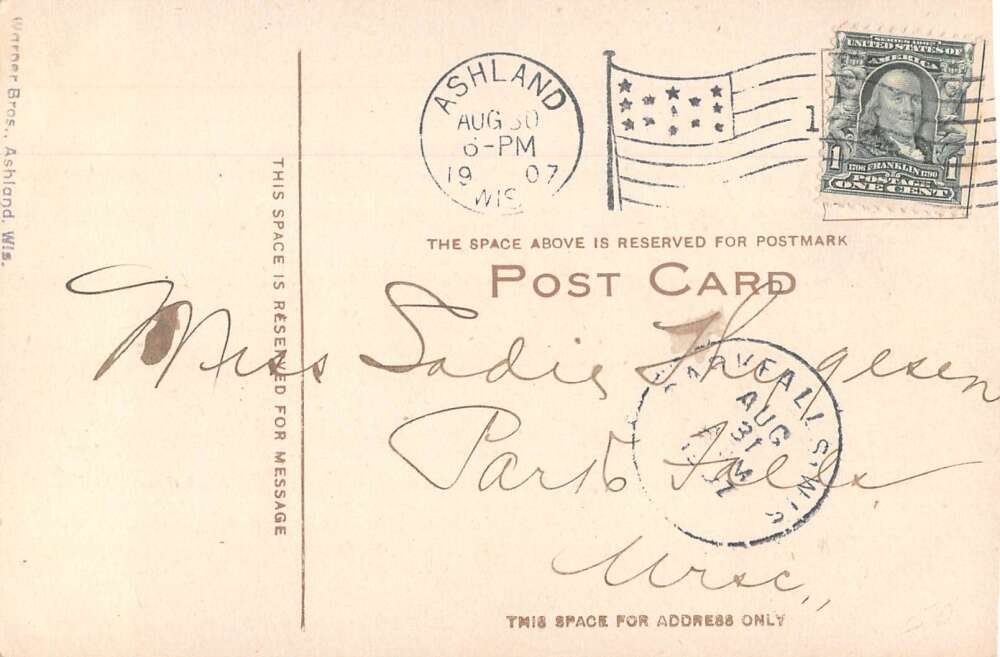 Warner Bros., Ashland, Wis.
ASHLAND
AUG 30
6-PM
19 07
WIS.
1
SERIES 1902
UNITED STATES OF
AMERICA
1706 FRANKLIN 1790
1 1
POSTAGE
ONE CENT
THE SPACE ABOVE IS RESERVED FOR POSTMARK
POST CARD
THIS SPACE IS RESERVED FOR MESSAGE
Miss Sadie
Park Falls,
Wisc.,
PARK FALLS WIS
AUG
31
THIS SPACE FOR ADDRESS ONLY